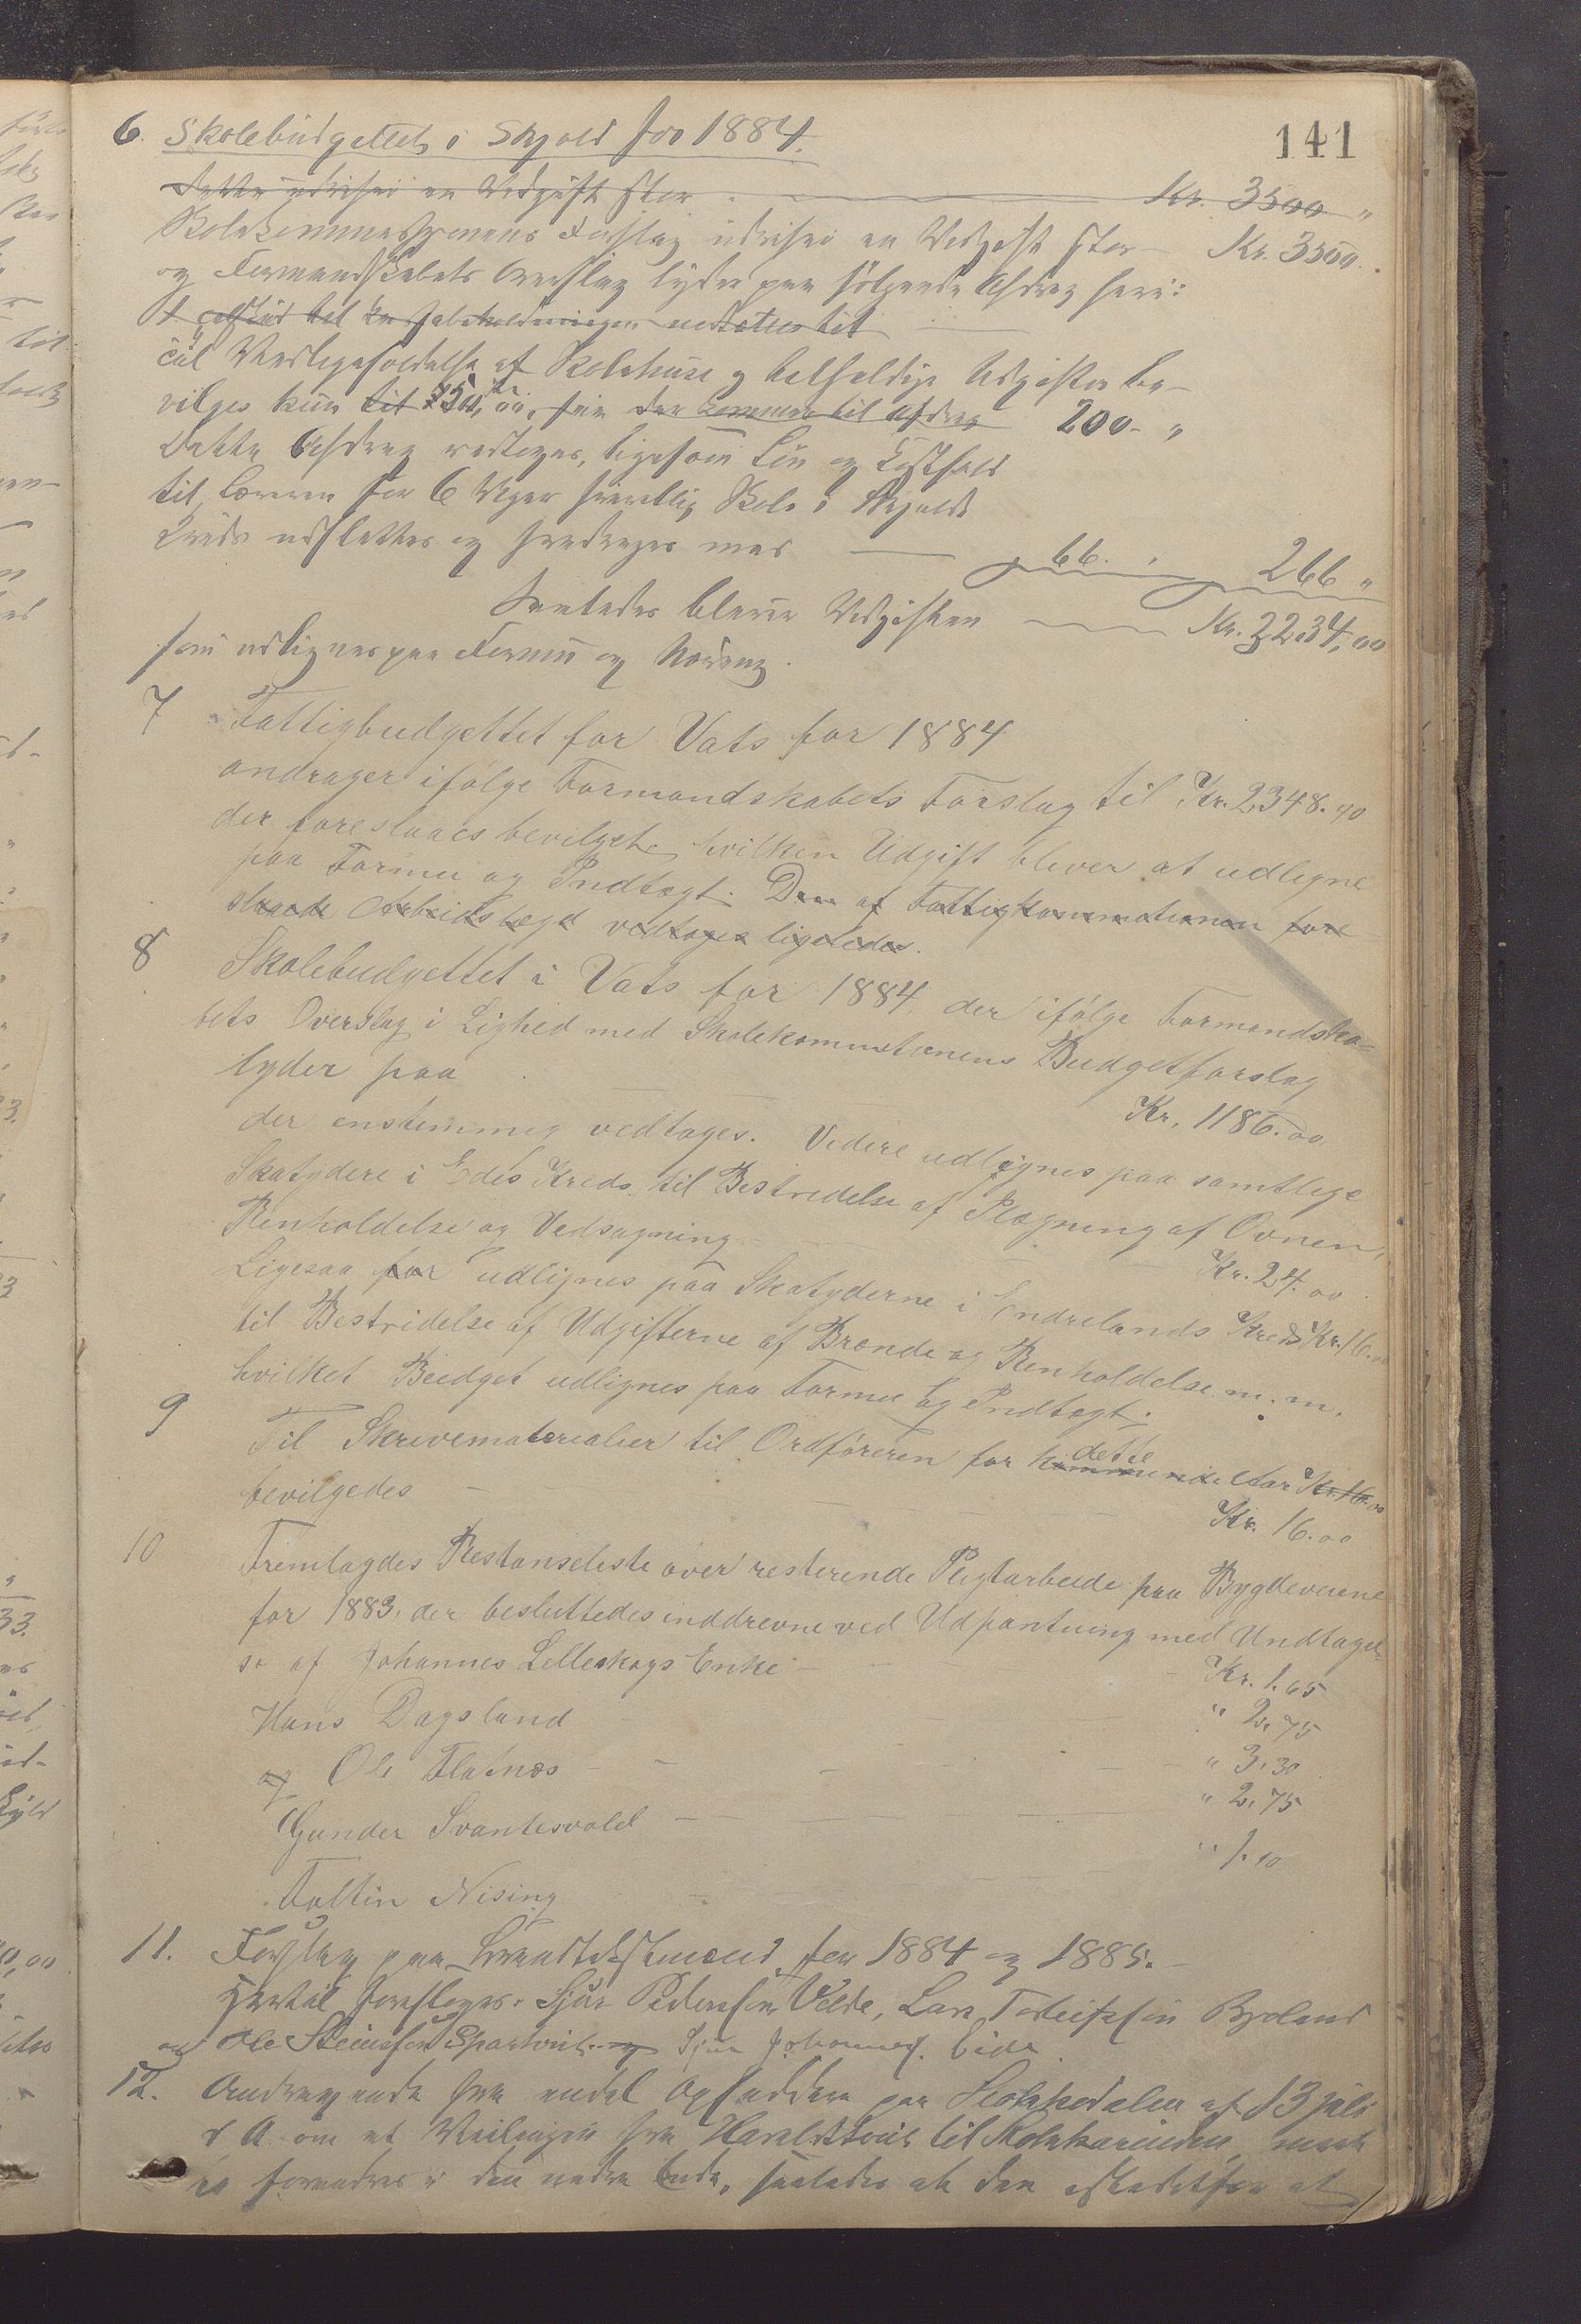 141
6. Skolebudgettet i Skjold for 1884.
Dette udviser en Udgift stor Kr. 3500 "
Skolekommissionens Forslag udviser en Udgift stor Kr. 3500.
og Formandskabets Overslag lyder paa følgende Afdrag heri:
til
Til Vedligeholdelse af Skolehuse og tilfældige Udgifter be-
vilges kun til 150,00, som der kommer til Afdrag 200 - "
Dette Afdrag vedtages, ligesom Løn og Kosthold
til Læreren for 6 Uger frivillig Skole i Skjolds
Kreds udslettes og fradrages med 66. " 266 "
Saaledes bliver Udgiften Kr. 3234,00
som udlignes paa Formue og Næring.
7 Fattigbudgettet for Vats for 1884
andrager ifølge Formandskabets Forslag til Kr. 2348.40
der foreslaaes bevilget, hvilken Udgift bliver at udligne
paa Formue og Indtægt. Den af Fattigkommissionen fore
slaaede Arbeidslægd vedtages ligeledes.
8 Skolebudgettet i Vats for 1884, der ifølge Formandska-
bets Overslag i Lighed med Skolekommissionens Budgetforslag
lyder paa Kr. 1186.00
der enstemmig vedtages. Videre udlignes paa samtlige
Skatydere i Eides Kreds til Bestridelse af Plægning af Ovnen,
Renholdelse og Vedsagning Kr. 24.00
Ligesaa for udlignes paa Skatyderne i Endrelands Kreds Kr. 16.00
til Bestridelse af Udgifterne af Brænde og Renholdelse m.m.
hvilket Budget udlignes paa Formue og Indtægt.
9 Til Skrivematerialier til Ordføreren for kommende dette Aar Kr. 16.00
bevilgedes Kr. 16.00
10 Fremlagdes Restanseliste over resterende Pligtarbeide paa Bygdeveiene
for 1883, der besluttedes inddrevne ved Udpantning med Undtagel-
se af Johannes Lilleskogs Enke Kr. 1.65
Hans Dagsland " 2.75
og Ole Flatnæs " 3.30
Gunder Svantesvold " 2.75
Toltin Nising " 1.10
11. Forslag paa for 1884 og 1885.
Hertil foreslages: Sjur Pedersen Velde, Lars Torleifsen Bjoland
og Ole Steinsen Espartvil og Sjur Johannes. Eide
12. Andragende fra endel Opsiddere paa Stokkedalen af 13 juli
d A om at Veilinjen fra Haraldsvik til Stokkaveien, maatte
forandres i den nedre Ende, saaledes at den istedetfor at